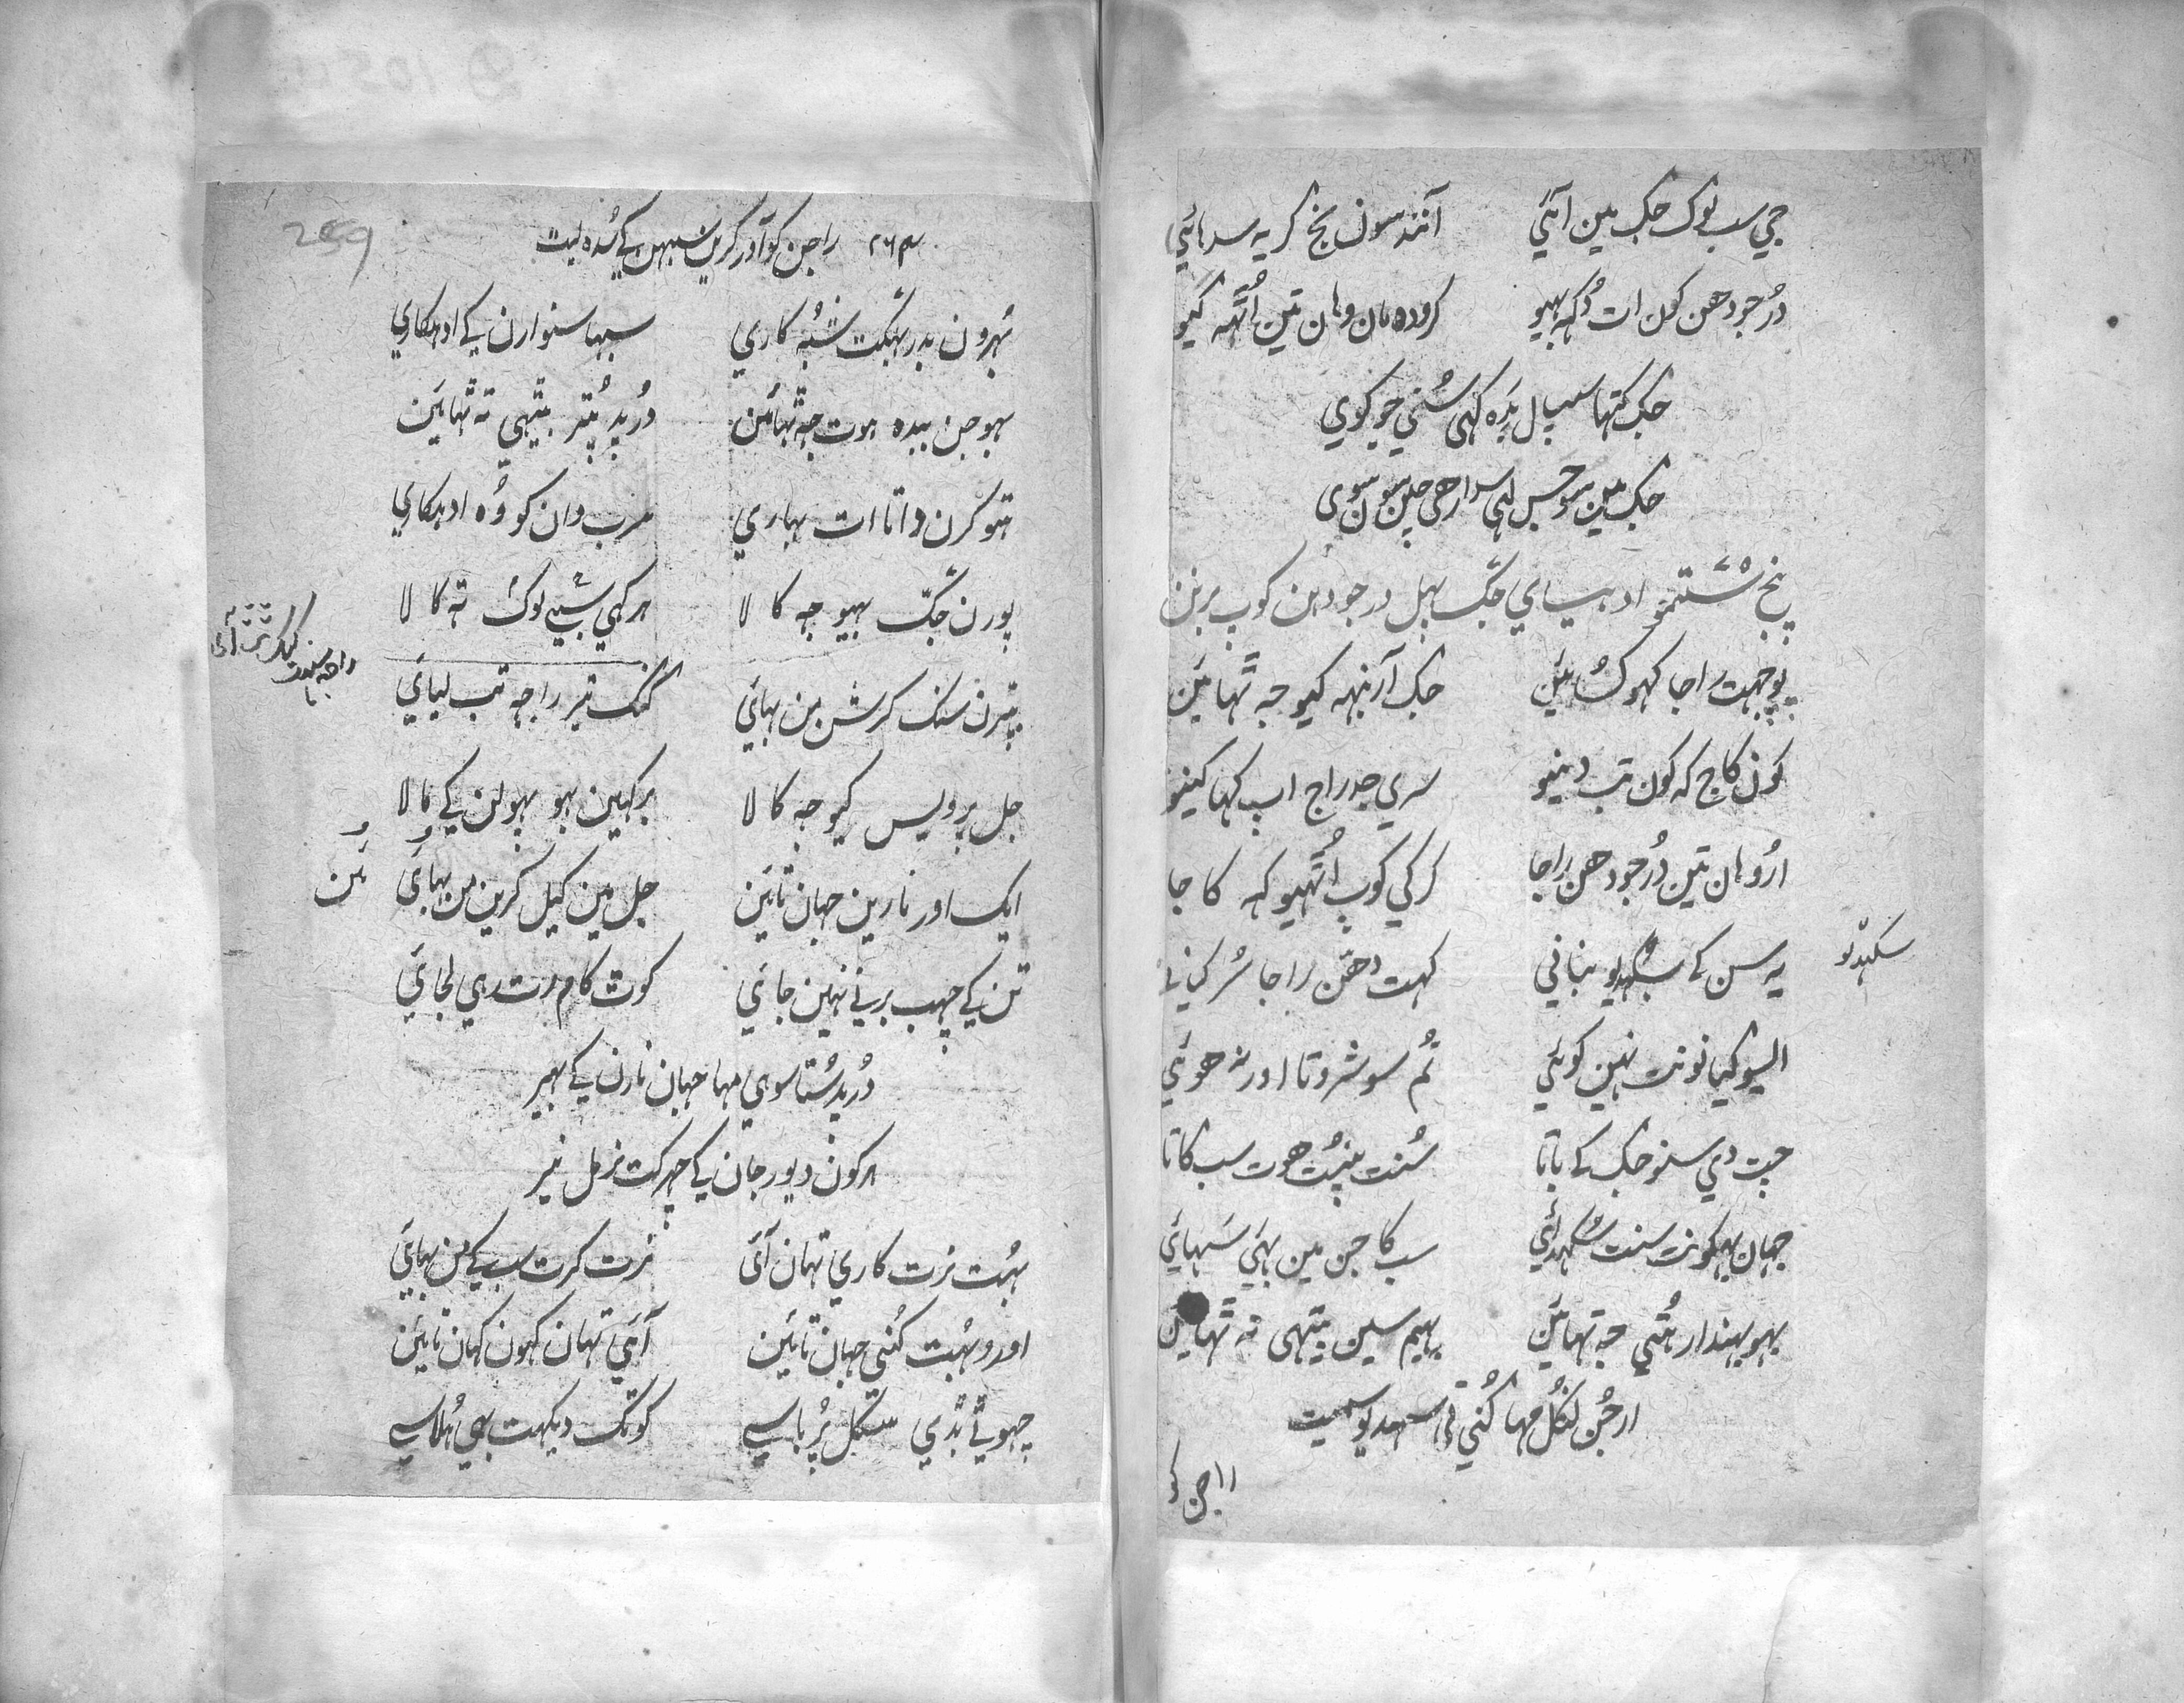 جي سب لوک جک مین آئي آنند سون نج کر یہ سرہائي
دُرجودھن کون ات دُکہ بہیو کرودہ مان وہان تین اُٹہہ گیو
جک کتہا سسپال بدہ کہی سُني جو کوي
جک مین سو جس لہی سدا رھی چین سون سوی
پنج ششتمو ادہیاي جک بہل درجودہن کوپ برنن
پوچہت راجا کہو کُسائین جک آرنبہہ کیو جہ ٹہائین
کون کاج کہ کون تب دینو سري جدراج اپ کہا کینو
ارُو وہان تین دُرجودھن راجا کر کي کوپ اُٹہیو کہ کاجا
یہ سن کے سُکہدیو بنانی کہت دھن راجا سُر کیانی
سکہدیو
ایسو کیانونت نہین کوئي تُم سو شروتا اور نہ ھوئي
چت دي سنو جک کے باتا سُنت پنپُت ھوت سب کاتا
جہان بہکونت سنت سُکہدائي سب کاجن مین بہئي سَہائي
بہو بہنڈار ہُتي جہ ٹہائین بہیم سین بیٹہی تہ ٹہائین
ارجُن نکُل مہا کُني تی سہدیو سمیت
راجن کو
۲۶۴ راجن کو آدر کرین سبہن کے سُدہ لیت
بہرون بدر بہکت شبُہ کاري سبہا سنوارن کے ادہکاري
بہوجن ببدہ ہوت جہ ٹہائین دُرپد پُتر بیٹہی تہ ٹہائین
ہتو کرن داتا ات بہاري سرب دان کو وُہ ادہکاري
پورن جک بہیو جہ کالا ہرکہي سبے لوک تہ کالا
پترن سنک کرشن من بہائي گنگ تیر راجہ تب لیائي
جل پرویس کیو جہ کالا برکہین بہو پہولن کے مالا
ایک اور نارین جہان تائین جل مین کیل کرین من بہائي
تن کے چہب برنے نہین جائي کوٹ کام رت رہي لجائي
دُرپد سُتا سوہي مہا جہان نارن کے بہیر
ہر کون دیور جان کے چہرکت نرمل نیر
بہُت نرت کاري تہان آئي نرت کرت سب کے من بہائي
اور و بہُت کُني جہان تائین آئي تہان کہون کہان تائین
چہوٹے بڈي سکل پُر باسے کوتک دیکہت بہي ہُلاسے